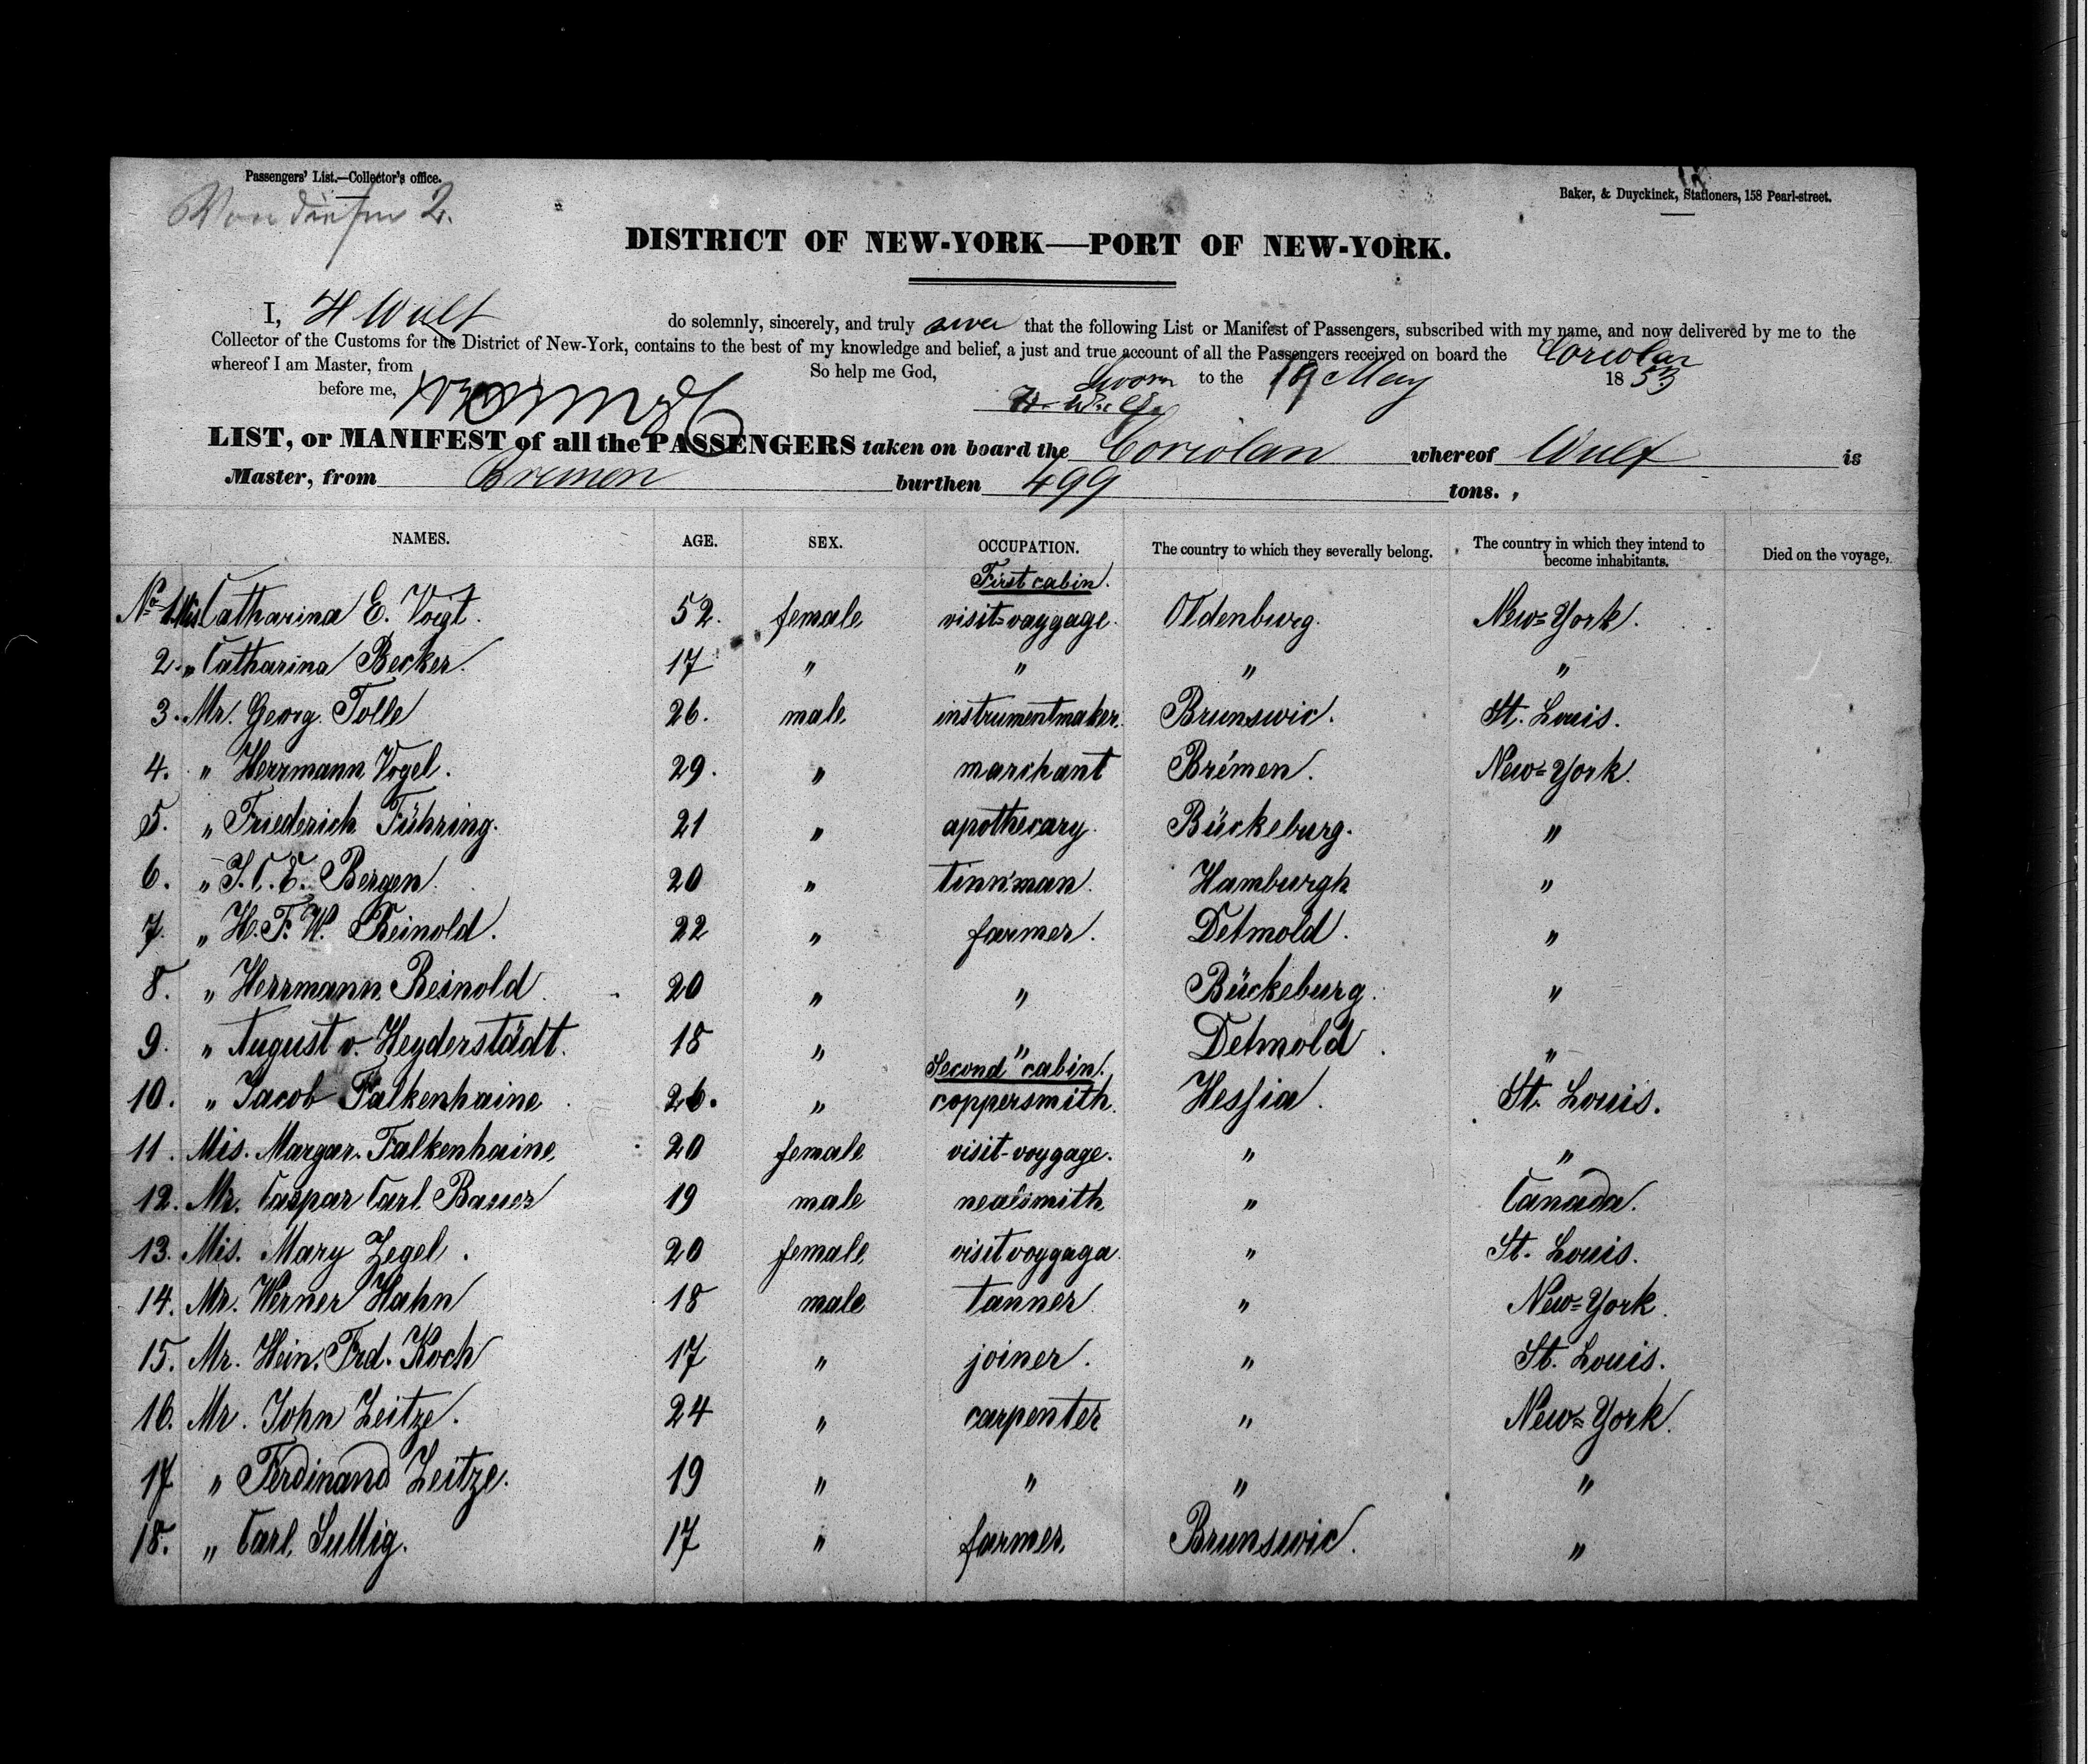 Passengers' List.—Collector's office.
Baker, & Duyckinck, Stationers, 158 Pearl-street.
2.
DISTRICT OF NEW-YORK—PORT OF NEW-YORK.
I, H Wulf do solemnly, sincerely, and truly that the following List or Manifest of Passengers, subscribed with my name, and now delivered by me to the
Collector of the Customs for the District of New-York, contains to the best of my knowledge and belief, a just and true account of all the Passengers received on board the Coriolan
whereof I am Master, from So help me God, Sworn to the 19 May 1853
before me, H. Wulf
LIST, or MANIFEST of all the PASSENGERS taken on board the Coriolan whereof Wulf is
Master, from Bremen burthen 499 tons.,
NAMES. AGE. SEX. OCCUPATION. The country to which they severally belong. The country in which they intend to become inhabitants. Died on the voyage,
First cabin.
No 1. Mis. Catharina E. Voigt. 52. female visit=vaygage. Oldenburg. New=York.
2. " Catharina Becker. 17 " " " "
3. Mr. Georg. Tolle 26. male instrumentmaker. Brunswic. St. Louis.
4. " Herrmann Vogel. 29. " marchant Bremen. New=York.
5. " Friederich Führing. 21 " apothecary. Bückeburg. "
6. " J.C.E. Bergen 20 " tinnman. Hamburgh "
7. " H.F.W. Reinold. 22 " farmer. Detmold. "
8. " Herrmann Reinold 20 " " Bückeburg. "
9. " August v. Heyderstädt. 18 " " Detmold. "
Second cabin.
10. " Jacob Falkenhaine 26. " coppersmith. Hessia. St. Louis.
11. Mis. Margar. Falkenhaine, 20 female visit-voygage. " "
12. Mr. Caspar Carl Bauer 19 male nealsmith " Canada.
13. Mis. Mary Zegel. 20 female visit voygaga. " St. Louis.
14. Mr. Werner Hahn 18 male tanner " New=York.
15. Mr. Hein. Frd. Koch 17 " joiner. " St. Louis.
16. Mr. John Zeitze. 24 " carpenter " New=York.
17 " Ferdinand Zeitze. 19 " " " "
18. " Carl. 17 " farmer, Brunswic. "